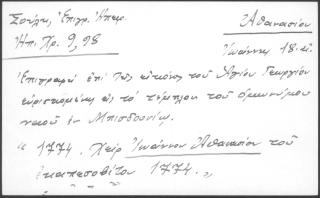 Σούλη, Ἐπιγρ. Ἠπειρ.
Ἠπ. Χρ. 9, 98
Ἀθανασίου
Ἰωάννης 18 αἰ.
Ἐπιγραφὴ ἐπὶ τῆς εἰκόνος τοῦ Ἁγίου Γεωργίου
εὑρισκομένης εἰς τὸ τέμπλον τοῦ ὁμωνύμου
ναοῦ ἐν Μπισδουνίῳ.
"1774. Χεὶρ Ἰωάννου Ἀθανασίου τοῦ
ἐκ Καπεσόβου 1774."